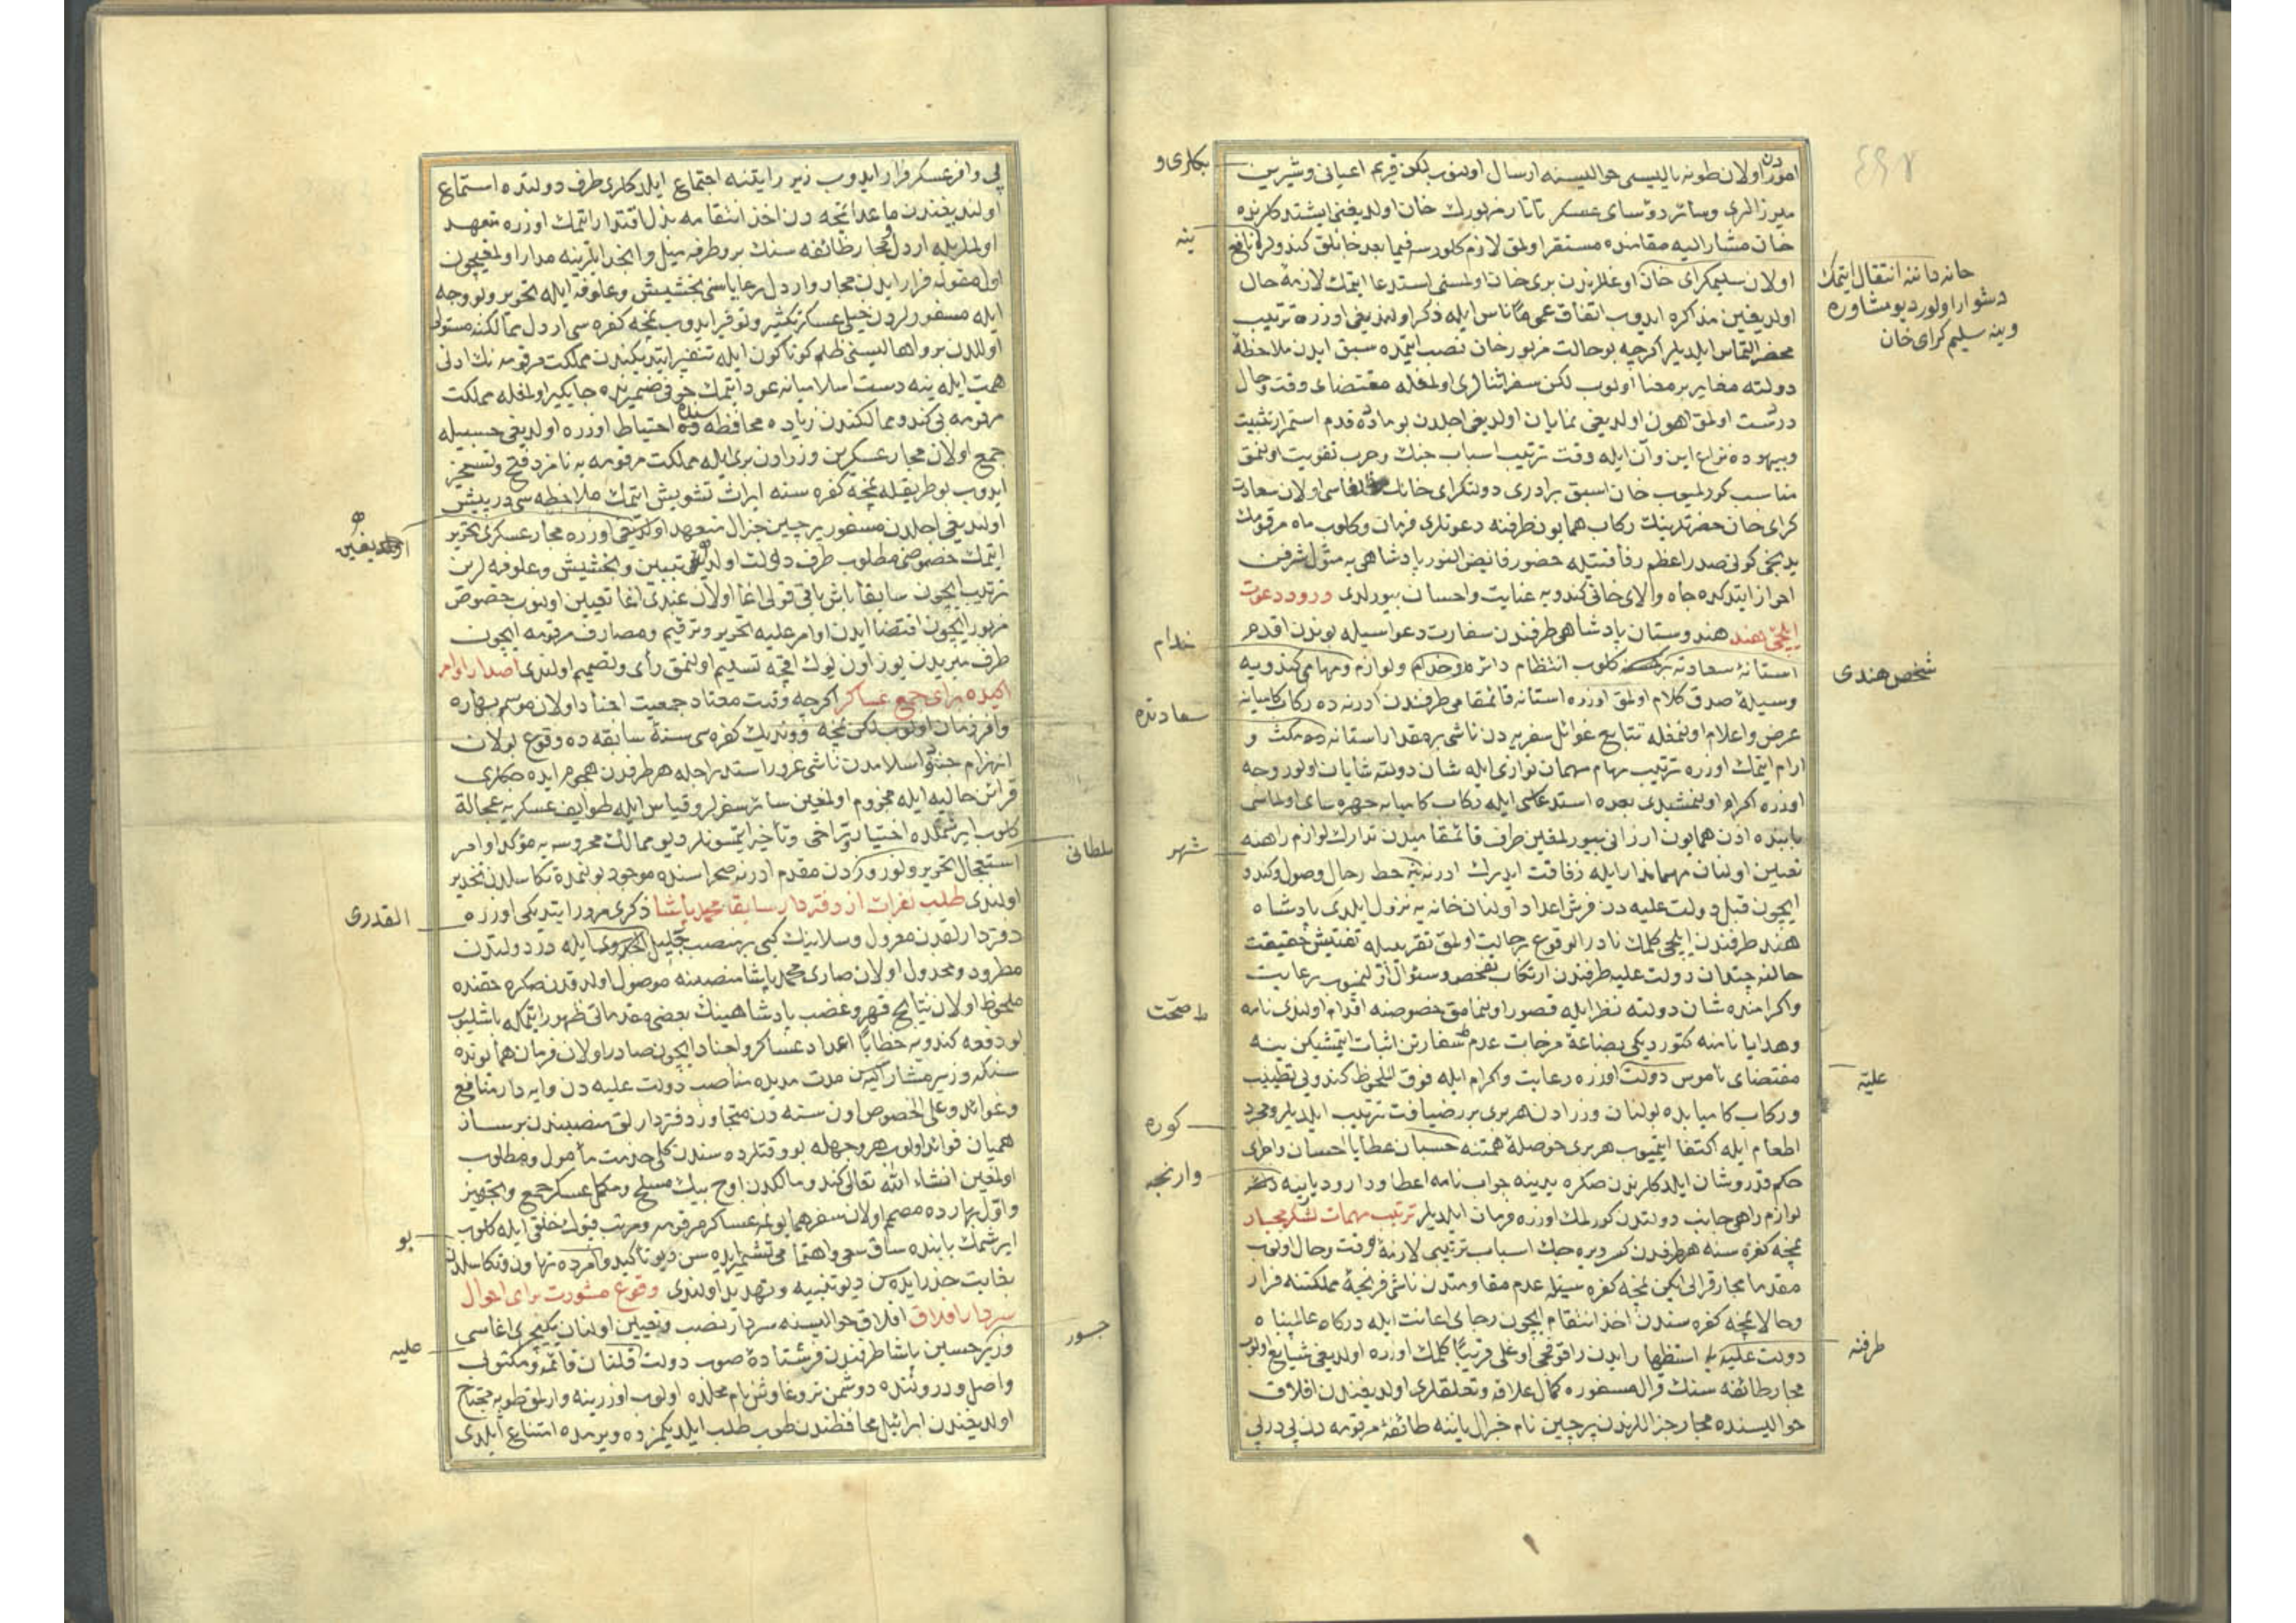 ٤٩٧
امور دن اولان طونه یالیسی حوالیسنه ارسال اولنوب لکن قریم اعیانی وشیرین
بکلری و
میرزالری وسائر رؤسای عسکر تاتار مزبورك خان اولدیغنی ایشتدکلرنده
خان مشار الیه مقامنده مستقر اولمق لازم کلورسه فیما بعد خانلق کندولره نافع
ینه
خانه داننه انتقال ایتمك
دشوار اولور دیو مشاوره
وینه سلیم کرای خان
اولان سلیمکرای خان اوغللرندن بری خان اولمسنی استدعا ایتمك لازمهٔ حال
اولدیغین مذاکره ایدوب اتفاق عمی ناس ایله ذکر اولندیغی اوزره ترتیب
محضر التماس ایلدیلر اکرچه بو حالت مزبور خان نصب ایتمده سبق ایدن ملاحظهٔ
دولته مغایر بر معنا اولوب لکن سفر اثنالری اولمغله مقتضای وقت وحال
درست اولمق اهون اولدیغی نمایان اولدیغی اجلدن بو ماده قدم استمرار تثبیت
وبیهوده نزاع این وآن ایله وقت ترتیب اسباب جنك وحرب تفویت اولنمق
مناسب کورلمیوب خان اسبق برادری دولتکرای خانك اولان سعادت
کرای خان حضرتلرینك رکاب همایون طرفنه دعوتلری فرمان وکلوب ماه مرقومك
یدنجی کونی صدر اعظم رفاقتیله حضور فائض النور پادشاهی یه مثول شرفین
احراز ایتدکده جاه والای خانی کندویه عنایت واحسان بیورلدی ورود دعوت
ایلچیٔ هند هندوستان پادشاهی طرفندن سفارت دعواسیله بوندن اقدم
خدام
شخص هندی
استانهٔ سعادته کلوب انتظام دائره وخدام ولوازم ومهامی کندویه
وسیلهٔ صدق کلام اولمق اوزره استانه قائمقامی طرفندن ادرنه ده رکاب کامیابه
سعادتده
عرض واعلام اولنمغله تتابع غوائل سفریه دن ناشی بر مقدار استانه ده مکث و
ارام ایتمك اوزره ترتیب مهام مهمان نوازی ایله شان دولته شایان اولور وجه
اوزره اکرام اولنمشیدی بعده استدعاسی ایله رکاب کامیابه چهره سای اولماسی
بابنده اذن همایون ارزانی بیورلمغین طرف قائمقامیدن تدارك لوازم راهنه
شهر
تعیین اولنان مهماندار ایله رفاقت ایدرك ادرنه یه حط رحال وصول وکندو
ایچون قبل دولت علیه دن فرش اعداد اولنان خانه یه نزول ایلدی پادشاه
هند طرفندن ایلچی کلمك نادر الوقوع بر حالت اولمق تقریبیله تفتیش حقیقت
حالنه چندان دولت علیه طرفندن ارتکاب تفحص وسئوال اولنمیوب رعایت
واکرامنده شان دولته نظر ایله قصور اولنمامق خصوصنه اقدام اولندی نامه
صحت
وهدایا نامنه کتوردیکی بضاعهٔ مزجات عدم سفارتن اثبات ایتمشیکن ینه
علیّه
مقتضای ناموس دولت اوزره رعایت واکرام ایله فوق الملحوظ کندویی تطییب
ورکاب کامیابده بولنان وزرادن هر بری بر ضیافت ترتیب ایلدیلر ومجرد
کوره
اطعام ایله اکتفا ایتمیوب هر بری حوصلهٔ همتنه حسبان عطایا احسان واجرای
وارنجه
حکم قدر وشان ایلدکلرندن صکره یدینه جواب نامه اعطا ودارو دیارینه
لوازم راهی جانب دولتدن کورلمك اوزره فرمان ایلدیلر ترتیب مهمات لشکر مجار
نمچه کفره سنه هر طرفدن کسر دیره جك اسباب ترتیبی لازمهٔ وقت وحال اولوب
مقدما مجار قرالی ایکن نمچه کفره سیله عدم مقاومتدن ناشی فرنجه مملکتنه فرار
وحالا نمچه کفره سندن اخذ انتقام ایچون رجای اعانت ایله درکاه عالمپناه
طرفنه
دولت علیه یه استظهار ایدن راقوفچی اوغلی قریبًا کلمك اوزره اولدیغی شایع اولوب
مجار طائفه سنك قرال مسفوره کمال علاقه وتعلقلری اولدیغندن افلاق
حوالیسنده مجار جنراللرندن پرچین نام جنرال یاننه طائفهٔ مرقومه دن پی در پی
پی وافر عسکر فرار ایدوب زیر رایتنه اجتماع ایلدکلری طرف دولتده استماع
اولندیغندن ماعدا نمچه دن اخذ انتقامه بذل اقتدار ایتمك اوزره متعهد
اولمالریله اردل ومجار طائفه سنك بر وطرفه میل وانجذابلرینه مدار اولمغیچون
اول مقوله فرار ایدن مجار واردل رعایاسنی بخشیش وعلوفه ایله تحریر و بو وجه
ایله مسفورلردن خیلی عسکر تکثیر وتوفیر ایدوب نمچه کفره سی اردل ممالکنه مستولی
اوللدن برو اهالیسنی ظلم کوناکون ایله تنفیر ایتدیکندن مملکت مرقومه نك ادنی
همت ایله ینه دست اسلامیانه عود ایتمك خوفی ضمیرنده جایکیر اولمغله مملکت
مرقومه یی کندو ممالکندن زیاده محافظه سنده احتیاط اوزره اولدیغی حسبیله
جمع اولان مجار عسکرین وزرادن بری ایله مملکت مرقومه یه نامزد فتح وتسخیر
ایدوب بو طریقله نمچه کفره سنه ایراث تشویش ایتمك ملاحظه سی در پیش
اولدیغین
اولندیغی اجلدن مسفور پرچین جنرال متعهد اولدیغی اوزره مجار عسکری تحریر
ایتمك خصوصی مطلوب طرف دولت اولدیغی تبیین وبخشیش وعلوفه لرین
ترتیب ایچون سابقا باش باقی قولی اغا اولان عبدی اغا تعیین اولنوب خصوص
مزبور ایچون اقتضا ایدن اوامر علیه تحریر وترقیم ومصارف مرقومه ایچون
طرف میریدن یوز اون یوك اقچه تسلیم اولنمق رأی وتصمیم اولندی اصدار اوامر
اکیده برای جمع عساکر اکرچه وقت معتاد جمعیت اجناد اولان موسم بهاره
وافر زمان اولوب لکن نمچه وونديك کفره سی سنهٔ سابقه ده وقوع بولان
انهزام جنود اسلامدن ناشی غرور استدراجله هر طرفدن هجوم ایده جکلری
قرائن حالیه ایله مجزوم اولمغین سائر سفرلره قیاس ایله طوایف عسکریه عجالة
سلطانی
کلوب ایرشمکده اختیار تراخی وتأخیر ایتمسونلر دیو ممالك محروسه یه مؤکد اوامر
استعجال تحریر ونوروزدن مقدم ادرنه صحراسنده موجود بولنمده تکاسلدن تحذیر
اولندی طلب نفرات از دفتردار سابقا محمد پاشا ذکری مرور ایتدیکی اوزره
القدری
دفتردارلقدن معزول وسلانیك کبی بر منصب جلیل ایله در دولتدن
مطرود ومخذول اولان صاری محمد پاشا منصبنه موصول اولدقدن صکره حقنده
ملحوظ اولان نتایج قهر وغضب پادشاهینك بعضی مقدماتی ظهور ایتمکه باشلیوب
بو دفعه کندویه خطابًا اعداد عساکر واجناد ایچون صادر اولان فرمان همایونده
سنکه وزیر مشار الیه سن مدت مدیده مناصب دولت علیه دن وایه دار منافع
وعوائد وعلی الخصوص اون سنه دن متجاوز دفتردارلق منصبندن برساز
همیان فوائد اولوب هر وجهله بو وقتلرده سندن کلی خدمت مأمول ومطلوب
اولمغین انشاء الله تعالی کندو مالکدن اوچ بیك مسلح ومکمل عسکر جمع وتجهیز
واوّل بهارده مصمم اولان سفر همایونمه عساکر مرقومه ومرتب قپوك خلقی ایله کلوب
بو
ایرشمك بابنده ساق سعی واهتمامی تشمیر ایده سن دیو تأکید وامرده تهاون وتکاسلدن
بغایت حذر ایده سن دیو تنبیه وتهدید اولندی وقوع مشورت برای احوال
سردار افلاق افلاق حوالیسنه سردار نصب وتعیین اولنان یکیچری اغاسی
جسور
وزیر حسین پاشا طرفندن فرستادهٔ صوب دولت قلنان قائمه ومکتوبی
علیه
واصل ودروننده دوشمن تروغاوش نام محلده اولوب اوزرینه وارلمق طوبه محتاج
اولدیغندن ابرائیل محافظندن طوب طلب ایلدیکمزده ویرمده امتناع ایلدی